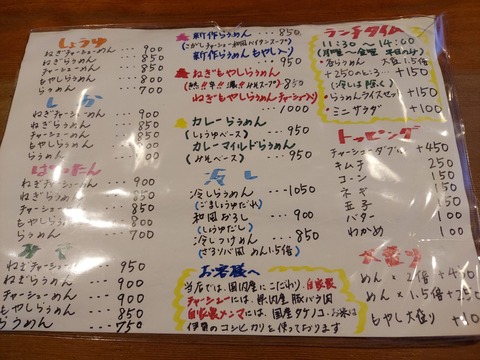 しょうゆ
ねぎチャーシューめん ... 900
ねぎらうめん ... 850
チャーシューめん ... 850
もやしらうめん ... 850
らうめん ... 700
しお
ねぎチャーシューめん ... 900
ねぎらうめん ... 850
チャーシューめん ... 850
もやしらうめん ... 850
らうめん ... 700
ねぎチャーシューめん ... 900
ねぎらうめん ... 850
チャーシューめん ... 850
もやしらうめん ... 850
らうめん ... 700
みそ
ねぎチャーシューめん ... 950
ねぎらうめん ... 900
チャーシューめん ... 900
もやしらうめん ... 900
らうめん ... 750
★新作らうめん ... 850
新作らうめん もやし入り
... 950
★ねぎもやしらうめん
ねぎもやしらうめんチャーシュー入り
... 1000
★カレーらうめん ... 850
(しょうゆベース)
カレーマイルドらうめん
(みそベース) ... 950
冷し
冷しらうめん ... 1050
(ごましょうゆだれ)
和風おろし ... 900
(しょうゆだし)
冷しつけめん ... 850
(ざるソバ風 めん1.5倍)
お客様へ
当店では、国内産にこだわり、自家製
チャーシューには、県内産豚バラ肉
自家製メンマには、国産タケノコ、お米は
伊賀のコシヒカリを使っております
ランチタイム
11:30 ~ 14:00
(月曜~金曜 平日のみ)
(冷しは除く)
・らうめんライスセット +150
・ミニサラダ +100
トッピング
チャーシューダブル +450
キムチ 250
コーン 150
ネギ 150
玉子 150
バター 100
わかめ 100
大盛り
めん × 2倍
めん × 1.5倍
もやし大盛り